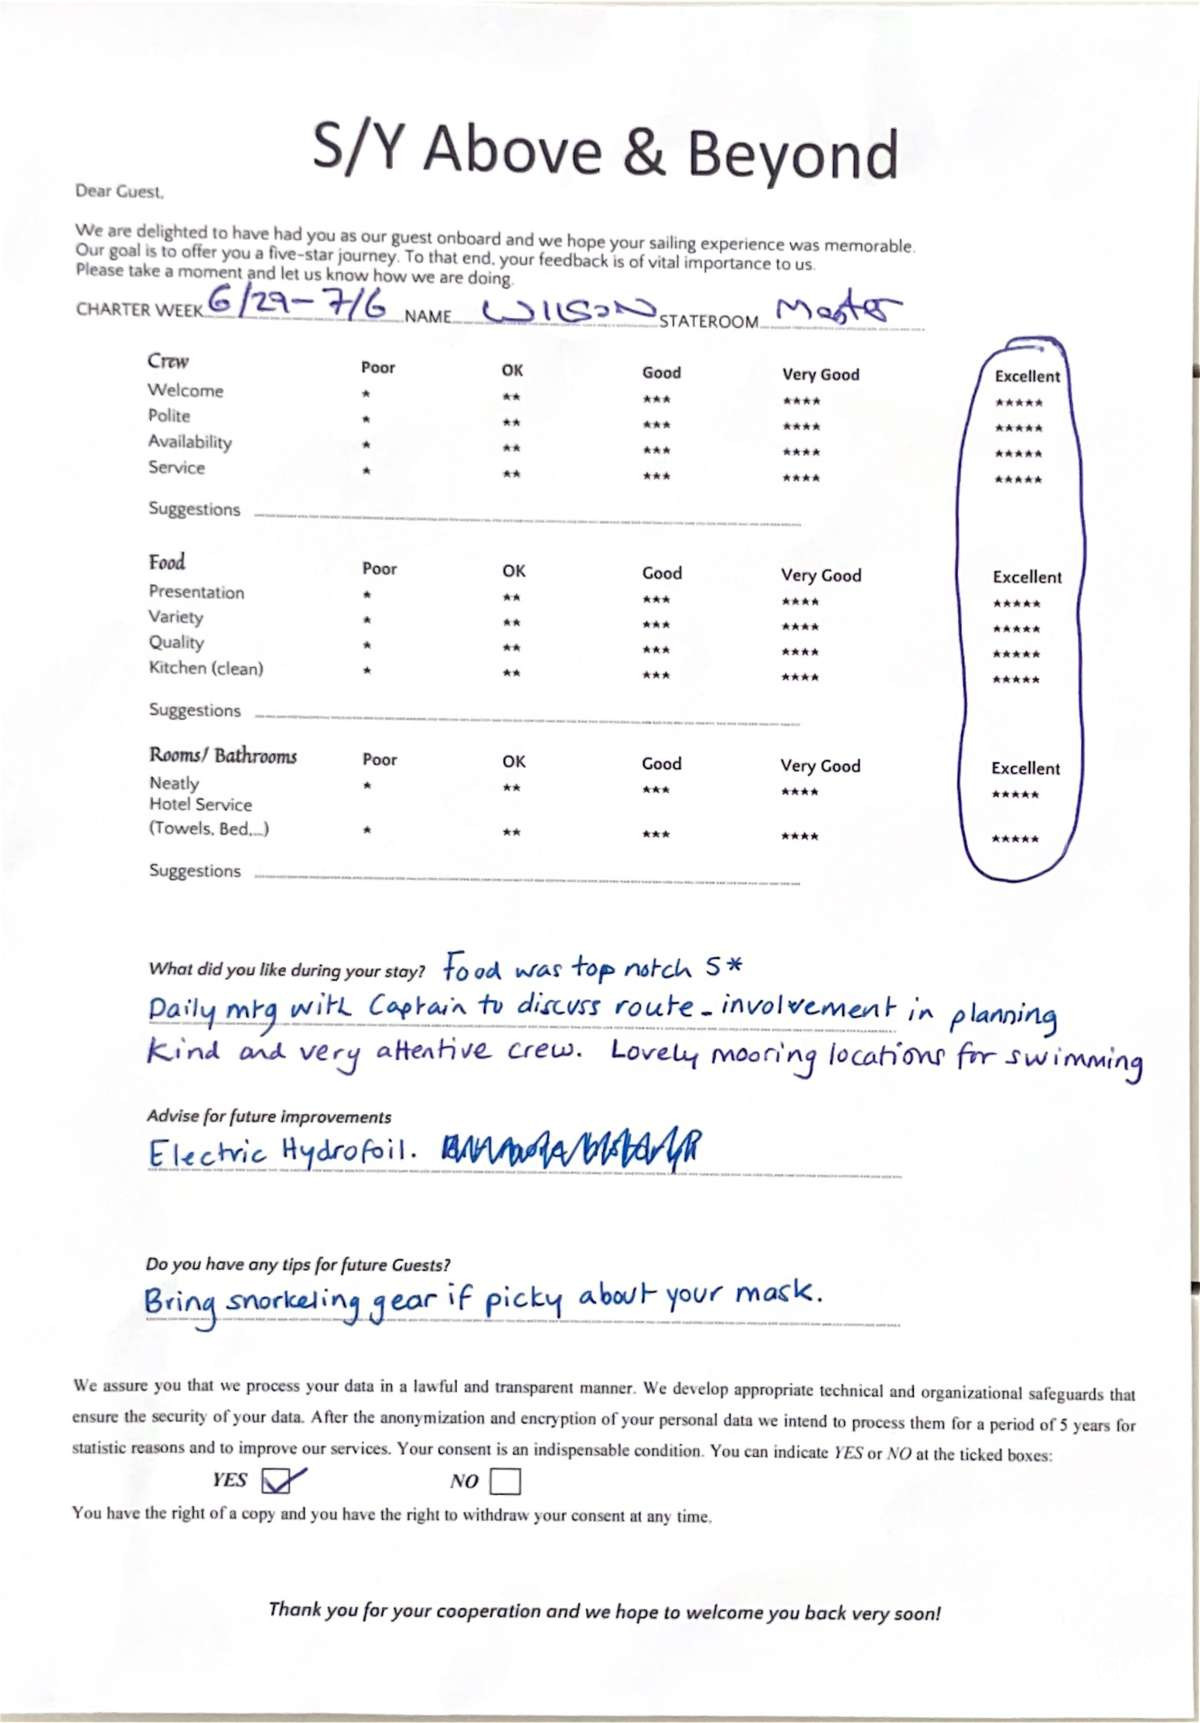 S/Y Above & Beyond
Dear Guest,
We are delighted to have had you as our guest onboard and we hope your sailing experience was memorable.
Our goal is to offer you a five-star journey. To that end, your feedback is of vital importance to us.
Please take a moment and let us know how we are doing.
CHARTER WEEK 6/29-7/6 NAME WILSON STATEROOM Master
Crew Poor OK Good Very Good Excellent
Welcome * ** *** **** *****
Polite * ** *** **** *****
Availability * ** *** **** *****
Service * ** *** **** *****
Suggestions
Food Poor OK Good Very Good Excellent
Presentation * ** *** **** *****
Variety * ** *** **** *****
Quality * ** *** **** *****
Kitchen (clean) * ** *** **** *****
Suggestions
Rooms/ Bathrooms Poor OK Good Very Good Excellent
Neatly * ** *** **** *****
Hotel Service
(Towels, Bed,...) * ** *** **** *****
Suggestions
What did you like during your stay? Food was top notch 5*
Daily mtg with Captain to discuss route - involvement in planning
Kind and very attentive crew. Lovely mooring locations for swimming
Advise for future improvements
Electric Hydrofoil.
Do you have any tips for future Guests?
Bring snorkeling gear if picky about your mask.
We assure you that we process your data in a lawful and transparent manner. We develop appropriate technical and organizational safeguards that
ensure the security of your data. After the anonymization and encryption of your personal data we intend to process them for a period of 5 years for
statistic reasons and to improve our services. Your consent is an indispensable condition. You can indicate YES or NO at the ticked boxes:
YES NO
You have the right of a copy and you have the right to withdraw your consent at any time.
Thank you for your cooperation and we hope to welcome you back very soon!